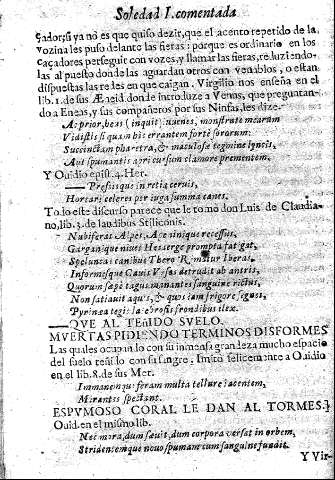 Soledad I. comentada
çador; si ya no es que quiso dezir, que el acento repetido de la
vozina les puso delante las fieras: porque es ordinario en los
caçadores perseguir con vozes, y llamar las fieras, reduziendo
las al puesto donde las aguardan otros con venablos, o estan
dispuestas las redes en que caigan. Virgilio nos enseña en el
lib. 1. de sus Æneid donde introduze a Venus, que preguntan-
do a Eneas, y sus compañeros por sus Ninfas, les dize.
Ac prior, heus (inquit) iuuenes, monstrate mearum
Vidistis si quam hic errantem forte sororum:
Succinctam pharetra, & maculosæ tegmine lyncis,
Aut spumantis apri cursum clamore prementem.
Y Ouidio epist. 4. Her.
— Pressisque in retia ceruis,
Hortari celeres per iuga summa canes.
Todo este discurso parece que le tomo don Luis de Claudia-
no, lib. 3. de laudibus Stiliconis.
recessus,
Gargan que niues Hecaerge prompta fatigat,
Speluncas canibus Thero Rimatur Iberas,
Informesque Cauis detrudit ab antris,
Quorum sæpè tagus manantes sanguine rictus,
Non satiauit aquis, & quos iam frigore segnes,
Pyrinea tegis latebrosis frondibus ilex.
—QVE AL TEÑIDO SVELO.
MVERTAS PIDIENDO TERMINOS DISFORMES
Las quales ocupando con su inmensa grandeza mucho espacio
del suelo teñido con su sangre, Imitò felicemente a Ouidio
en el lib. 8. de sus Mer.
Immanemque feram multa tellure iacentem,
Mirantes spectant.
ESPVMOSO CORAL LE DAN AL TORMES.
Ouid. en el mismo lib.
Nec mora, dum sæuit, dum corpora versat in orbem,
Stridentemque nouo spumam cum sanguine fundit.
Y Vir-